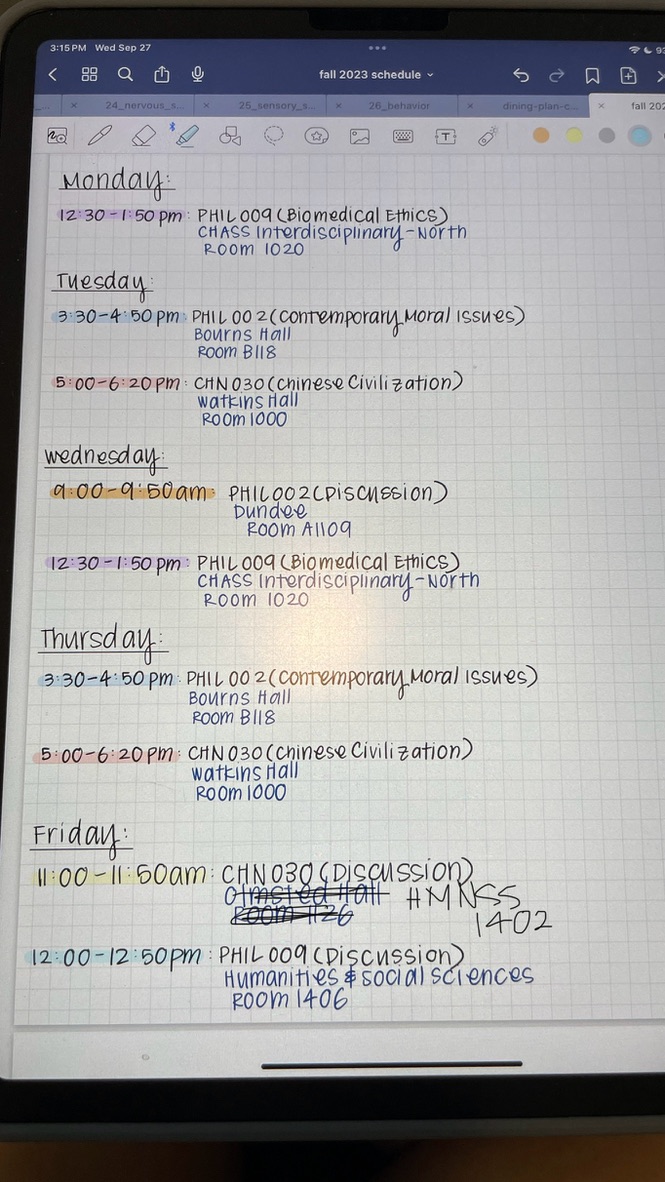 3:15 PM Wed Sep 27
fall 2023 schedule
24_nervous_s...
25_sensory_s...
26_behavior
dining-plan-c...
fall 202
Monday:
12:30-1:50 pm: PHIL 009 (Biomedical Ethics)
CHASS Interdisciplinary-North
Room 1020
Tuesday:
3:30-4:50 pm: PHIL 002 (Contemporary Moral Issues)
Bourns Hall
Room B118
5:00-6:20 pm: CHN 030 (Chinese Civilization)
Watkins Hall
Room 1000
Wednesday:
9:00-9:50am: PHIL 002 (Discussion)
Dundee
Room A1109
12:30-1:50 pm: PHIL 009 (Biomedical Ethics)
CHASS Interdisciplinary-North
Room 1020
Thursday:
3:30-4:50 pm: PHIL 002 (Contemporary Moral Issues)
Bourns Hall
Room B118
5:00-6:20 pm: CHN 030 (Chinese Civilization)
Watkins Hall
Room 1000
Friday:
11:00-11:50am: CHN 030 (Discussion)
Olmsted Hall HMNSS
Room 1126 1402
12:00-12:50pm: PHIL 009 (Discussion)
Humanities & Social Sciences
Room 1406